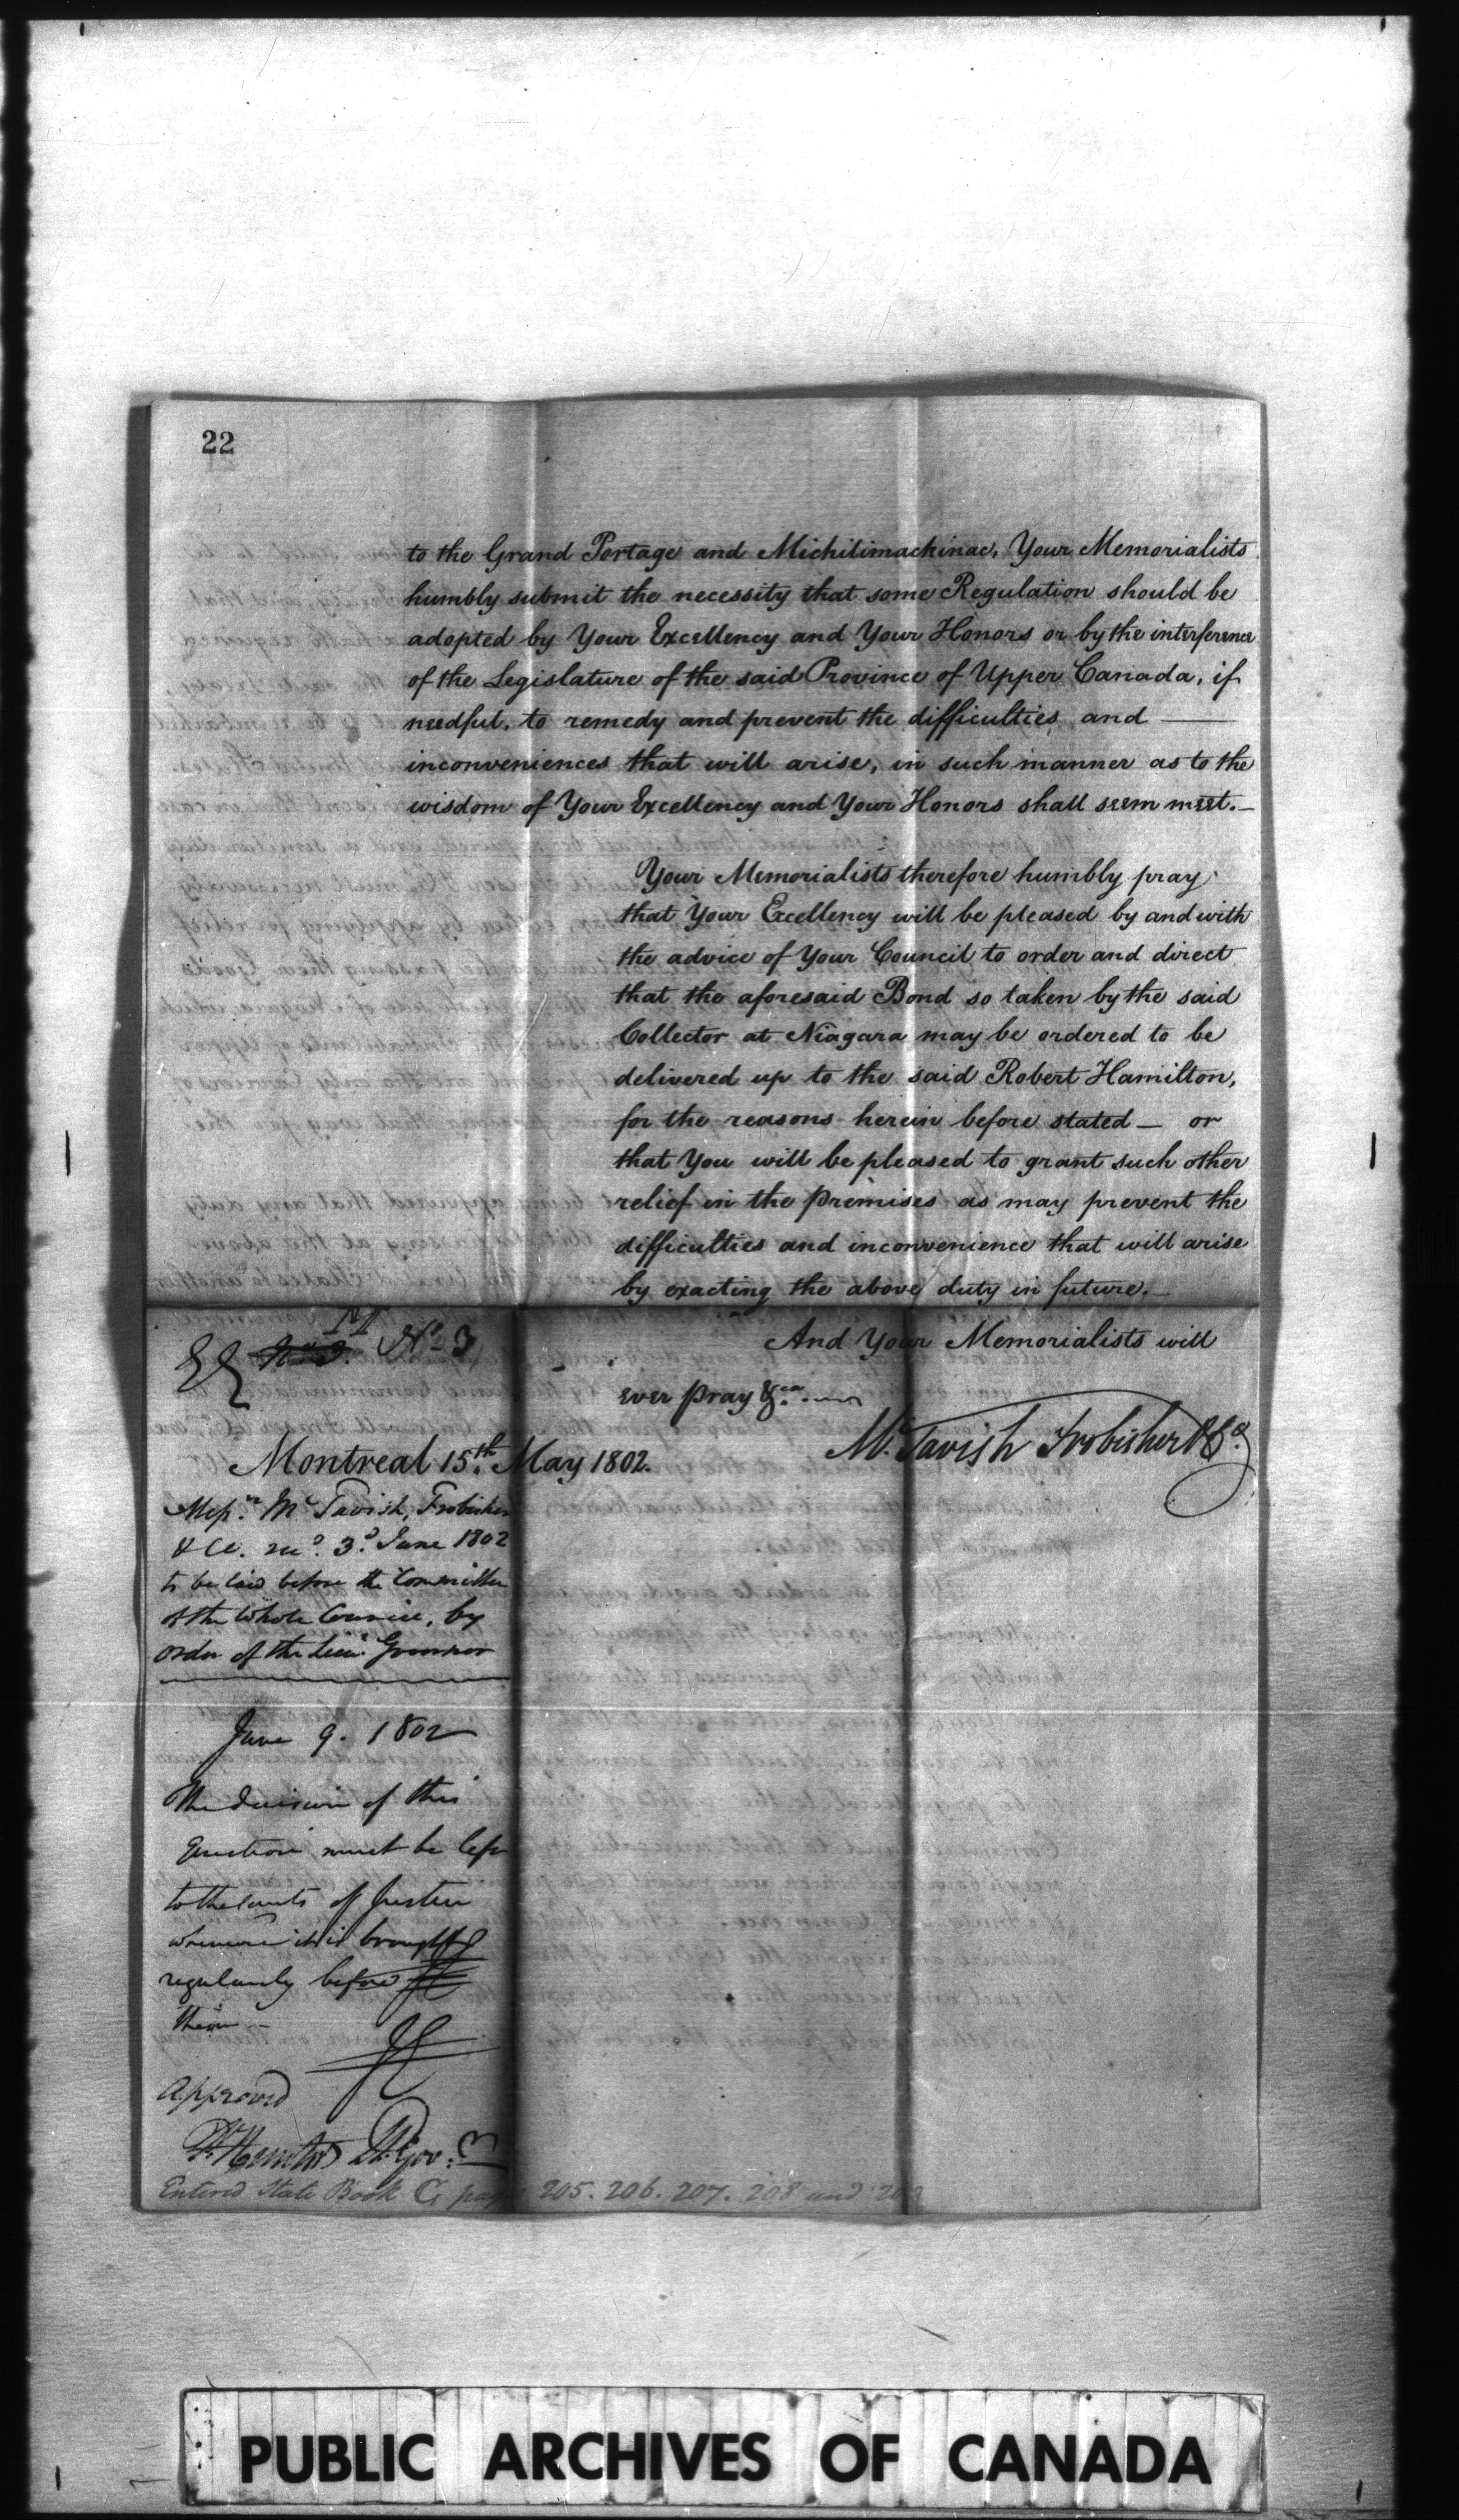 22
to the Grand Portage and Michilimackinac, Your Memorialists
humbly submit the necessity that some Regulation should be
adopted by Your Excellency and Your Honors or by the interference
of the Legislature of the said Province of Upper Canada, if
needful, to remedy and prevent the difficulties and
inconveniences that will arise, in such manner as to the
wisdom of Your Excellency and Your Honors shall seem meet.—
Your Memorialists therefore humbly pray
that Your Excellency will be pleased by and with
the advice of Your Council to order and direct
that the aforesaid Bond so taken by the said
Collector at Niagara may be ordered to be
delivered up to the said Robert Hamilton,
for the reasons herein before stated — or
that You will be pleased to grant such other
relief in the premises as may prevent the
difficulties and inconvenience that will arise
by exacting the above duty in future.—
And Your Memorialists will
ever pray &ca.
McTavish Frobisher & Co.
Montreal 15th May 1802.
No 3
Messrs McTavish, Frobisher
& Co. recd. 3d June 1802
to be laid before the Committee
of the Whole Council, by
order of the Lieut. Governor
June 9. 1802
The decision of this
Question must be left
to the Courts of Justice
whenever it is brought
regularly before
them —
Approved
P. Hunter Lt. Gov:
Entered State Book C, pages 205. 206. 207. 208 and 209
PUBLIC ARCHIVES OF CANADA